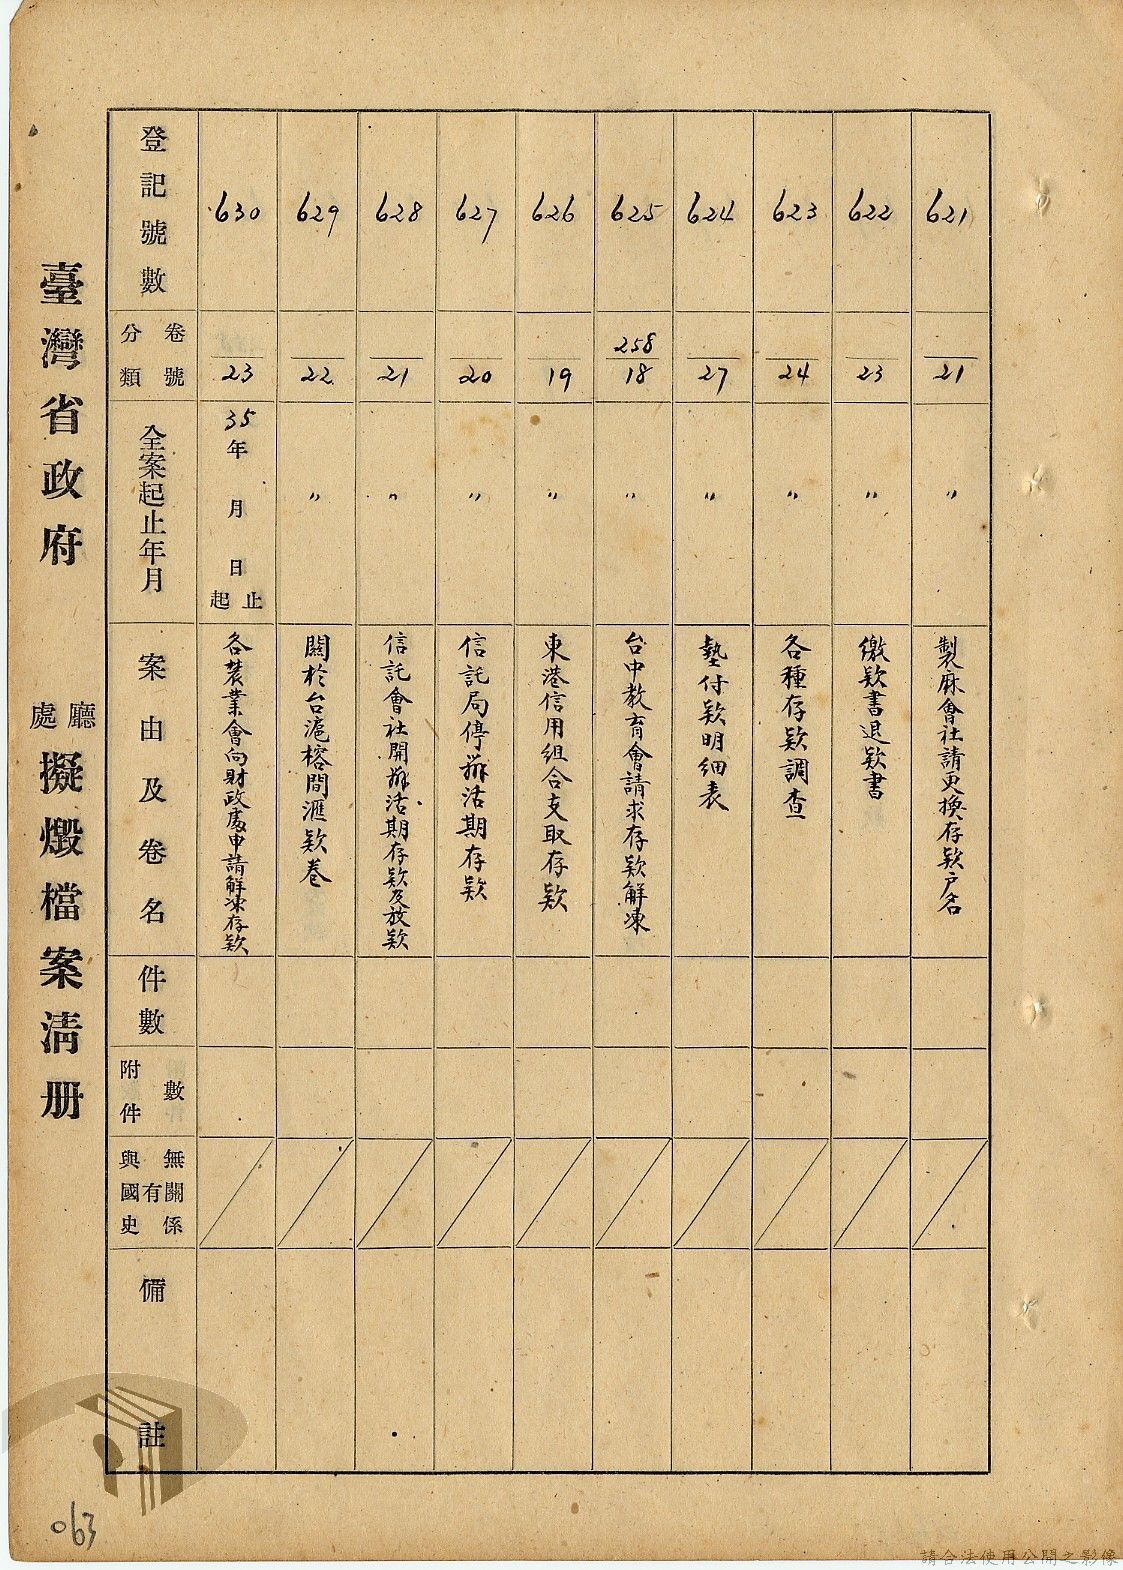 臺灣省政府 廳處擬燬檔案清册
登記號數
630
629
628
627
626
625
624
623
622
621
分類 卷號
23
22
21
20
19
258
18
27
24
23
21
全案起止年月
35年 月 日 起止
〃
〃
〃
〃
〃
〃
〃
〃
〃
案由及卷名
各農業會向財政處申請解凍存欵
關於台滬榕間滙欵卷
信託會社開辦活期存欵及放欵
信託局停辦活期存欵
東港信用組合支取存欵
台中教育會請求存欵解凍
墊付欵明細表
各種存欵調查
繳欵書退欵書
製麻會社請更換存欵戶名
件數
附件數
與國史有無關係
備註
063
請合法使用公開之影像